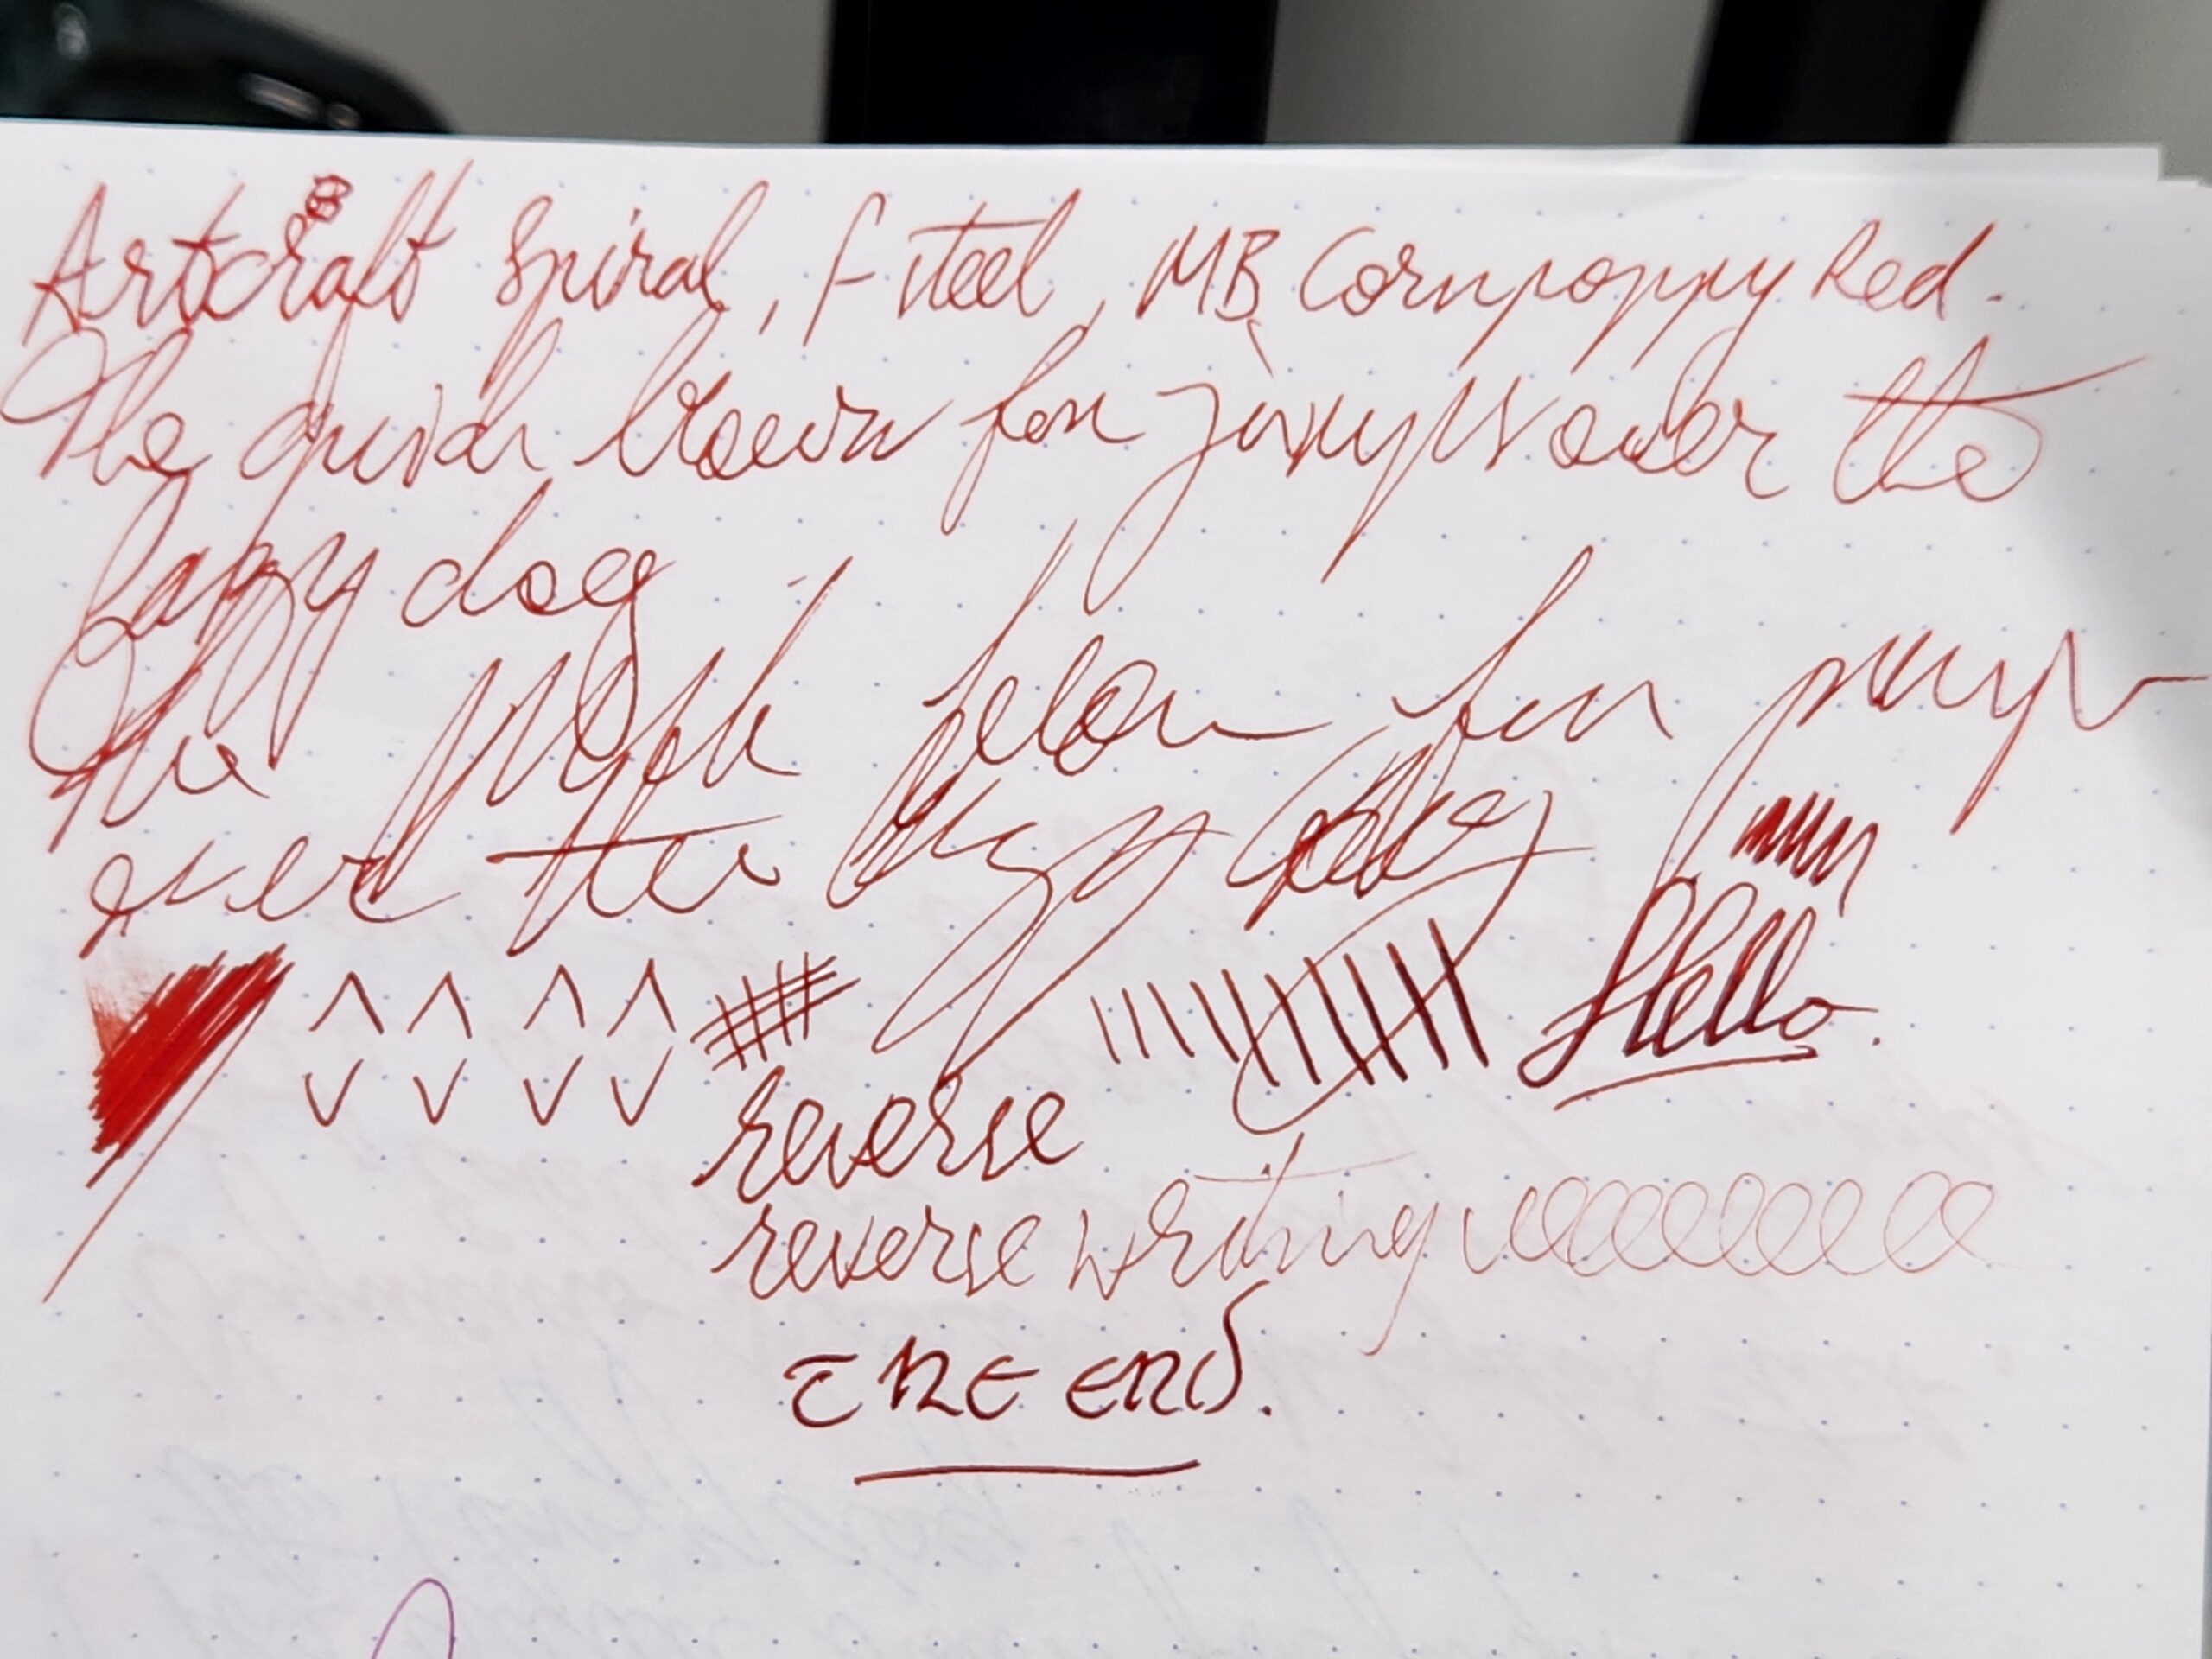 Artcraft Spiral, f steel, MB Cornpoppy Red.
The quick brown fox jumps over the
lazy dog
the
over the lazy dog
Hello.
reverse
reverse writing
THE END.